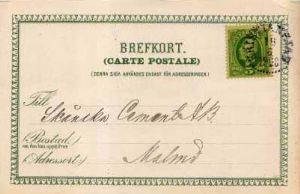 BREFKORT.
(CARTE POSTALE)
(DENNA SIDA AFVÄNDES ENDAST FÖR ADRESSERINGEN.)
Till
Skånska Cement A.B.
Bostad
(om den kan uppgifvas)
Adressort
Malmö